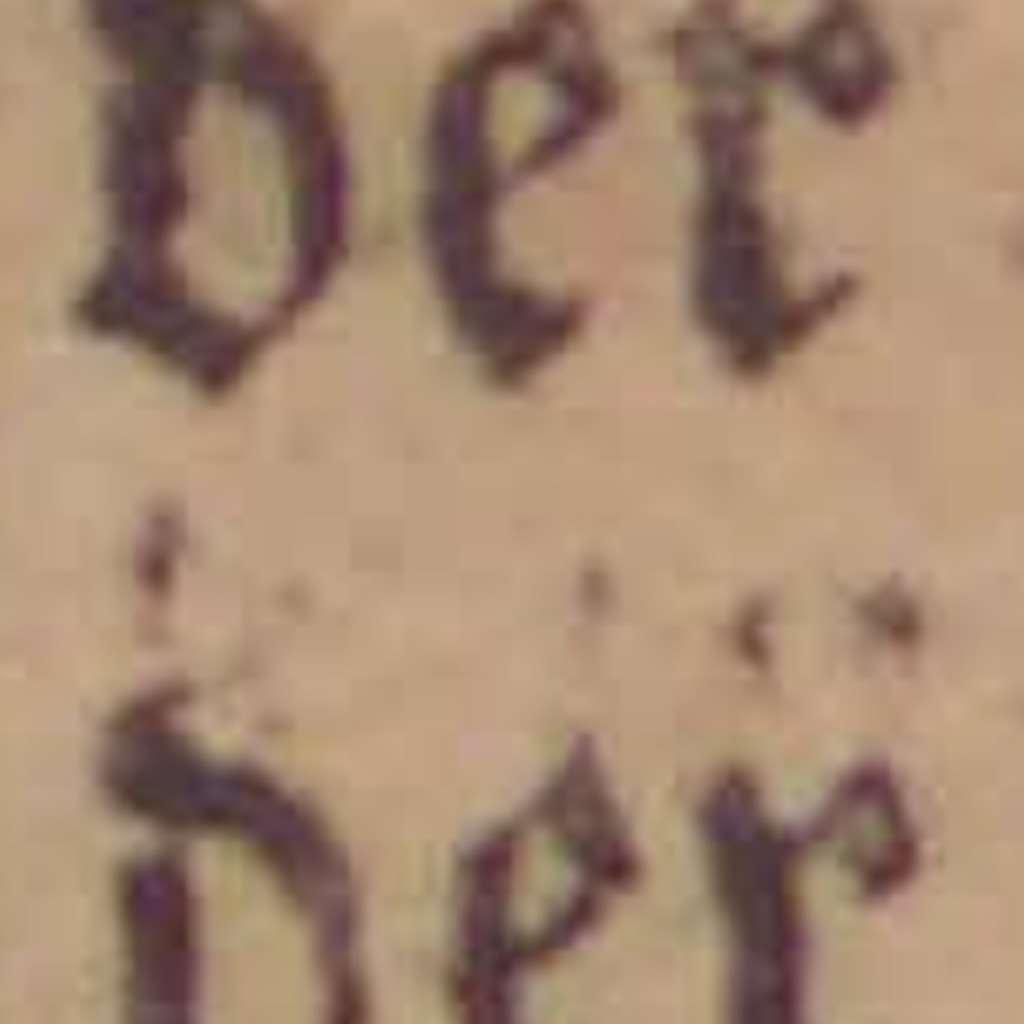 Der
Der